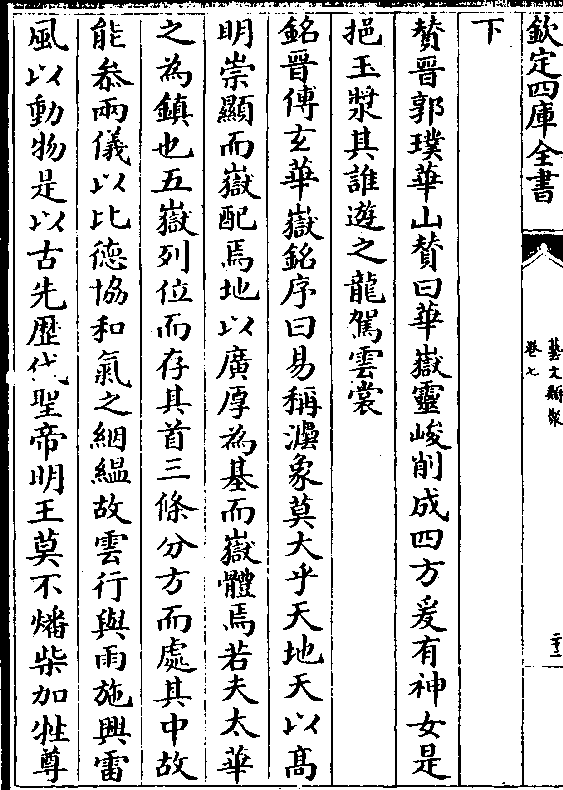 欽定四庫全書
藝文類聚
卷七
二十二
下
贊晉郭璞華山贊曰華嶽靈峻削成四方爰有神女是
挹玉漿其誰遊之龍駕雲裳
銘晉傅玄華嶽銘序曰易稱灋象莫大乎天地天以髙
明崇顯而嶽配焉地以廣厚為基而嶽體焉若夫太華
之為鎮也五嶽列位而存其首三條分方而處其中故
能叅兩儀以比德協和氣之絪縕故雲行與雨施興雷
風以動物是以古先歴代聖帝明王莫不燔柴加牲尊